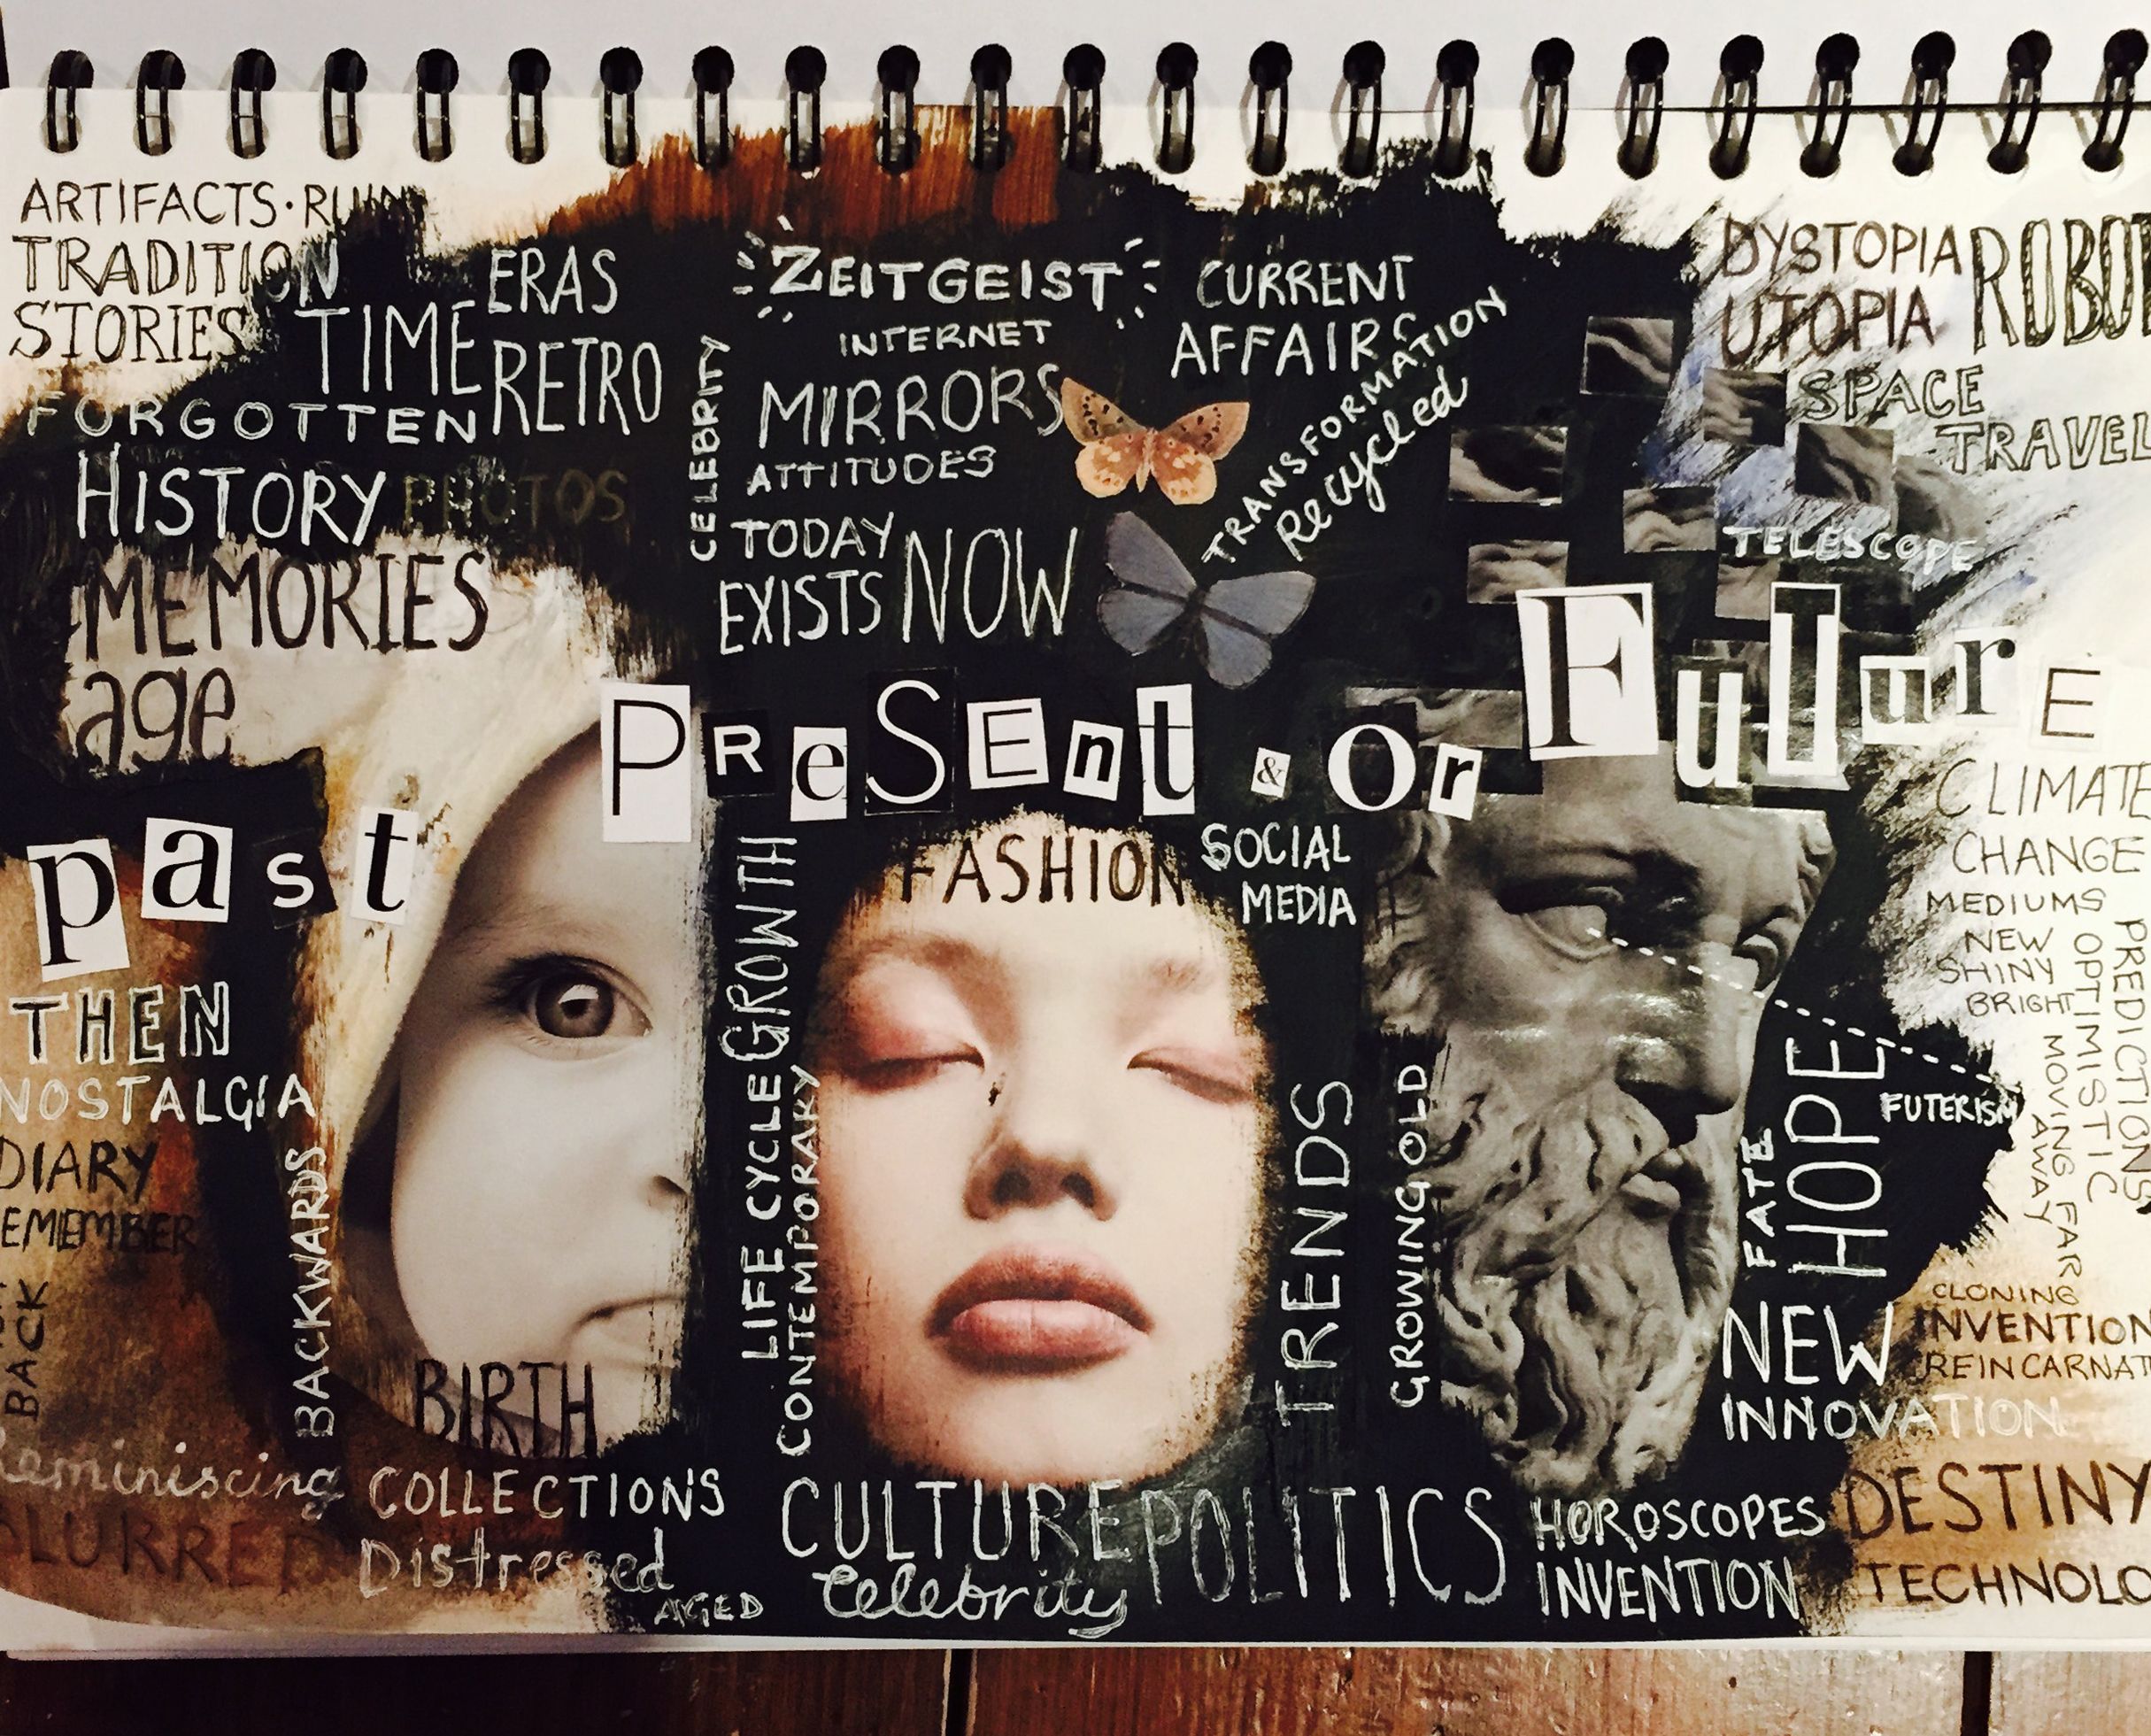 ARTIFACTS · RUIN
TRADITION
STORIES
TIME
ERAS
RETRO
FORGOTTEN
HISTORY
PHOTOS
MEMORIES
age
past
THEN
NOSTALGIA
DIARY
EMEMBER
BACK
BACKWARDS
BIRTH
Reminiscing
BLURRED
COLLECTIONS
Distressed
AGED
ZEITGEIST
INTERNET
MIRRORS
ATTITUDES
CELEBRITY
TODAY
EXISTS
NOW
CURRENT
AFFAIRS
TRANSFORMATION
Recycled
PReSEnt & Or FuTurE
GROWTH
LIFE CYCLE
CONTEMPORARY
FASHION
SOCIAL
MEDIA
TRENDS
GROWING OLD
CULTURE
POLITICS
Celebrity
DYSTOPIA
UTOPIA
ROBOT
SPACE
TRAVEL
TELESCOPE
CLIMATE
CHANGE
MEDIUMS
NEW
SHINY
BRIGHT
OPTIMISTIC
PREDICTIONS
MOVING FAR
AWAY
FUTERISM
FATE
HOPE
NEW
INNOVATION
CLONING
INVENTION
REINCARNAT
HOROSCOPES
INVENTION
DESTINY
TECHNOLO